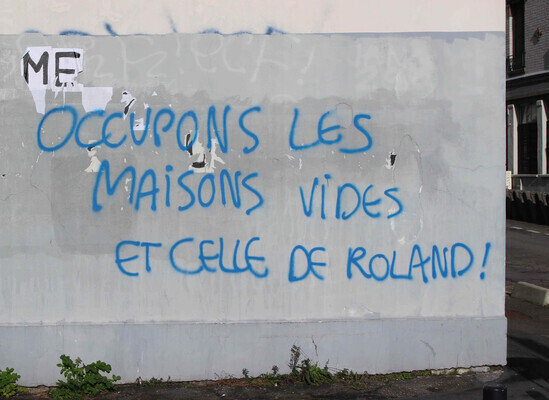 ME
OCCUPONS LES
MAISONS VIDES
ET CELLE DE ROLAND!